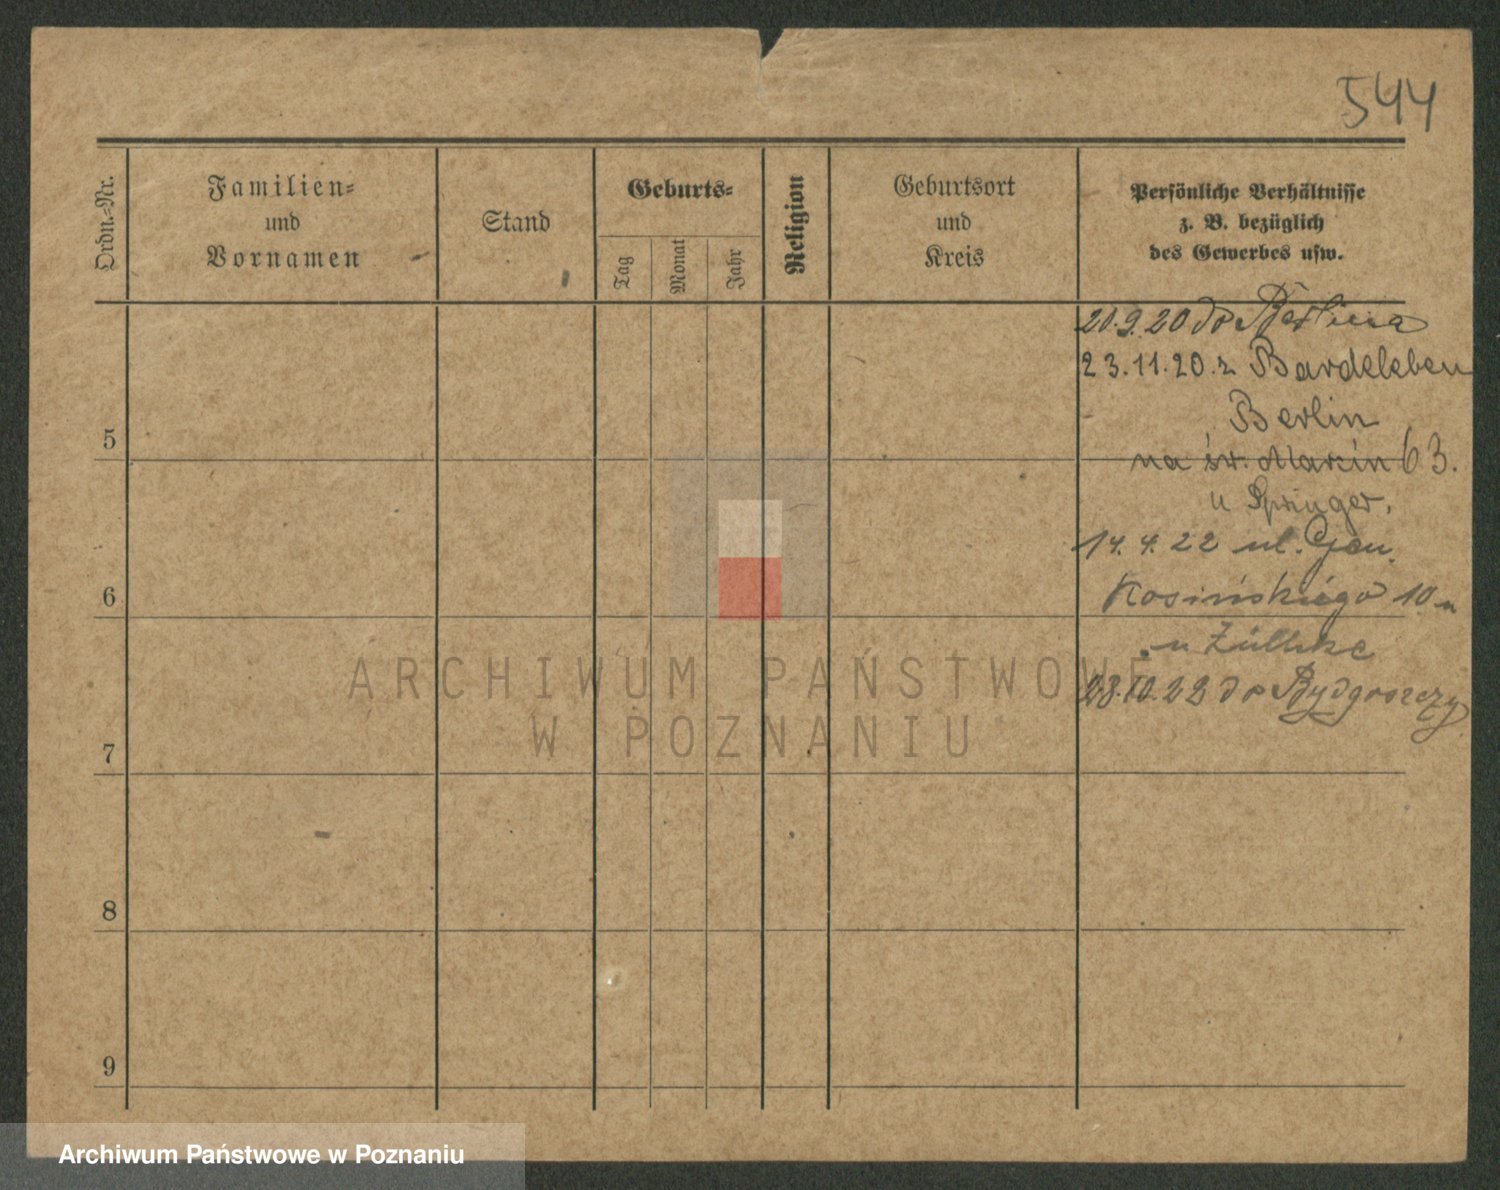 544
Ordn.-Nr.
Familien-
und
Vornamen
Stand
Geburts-
Tag
Monat
Jahr
Religion
Geburtsort
und
Kreis
Persönliche Verhältnisse
z. B. bezüglich
des Gewerbes usw.
20.9.20 do Berlina
23.11.20. z Bardeleben
Berlin
5
na św. Marcin 63.
u Springer.
14. 4. 22 ul. Gen.
6
Kosińskiego 10
u Züllske
ARCHIWUM PAŃSTWOWE
23.10.22 do Bydgoszczy
W POZNANIU
7
8
9
Archiwum Państwowe w Poznaniu